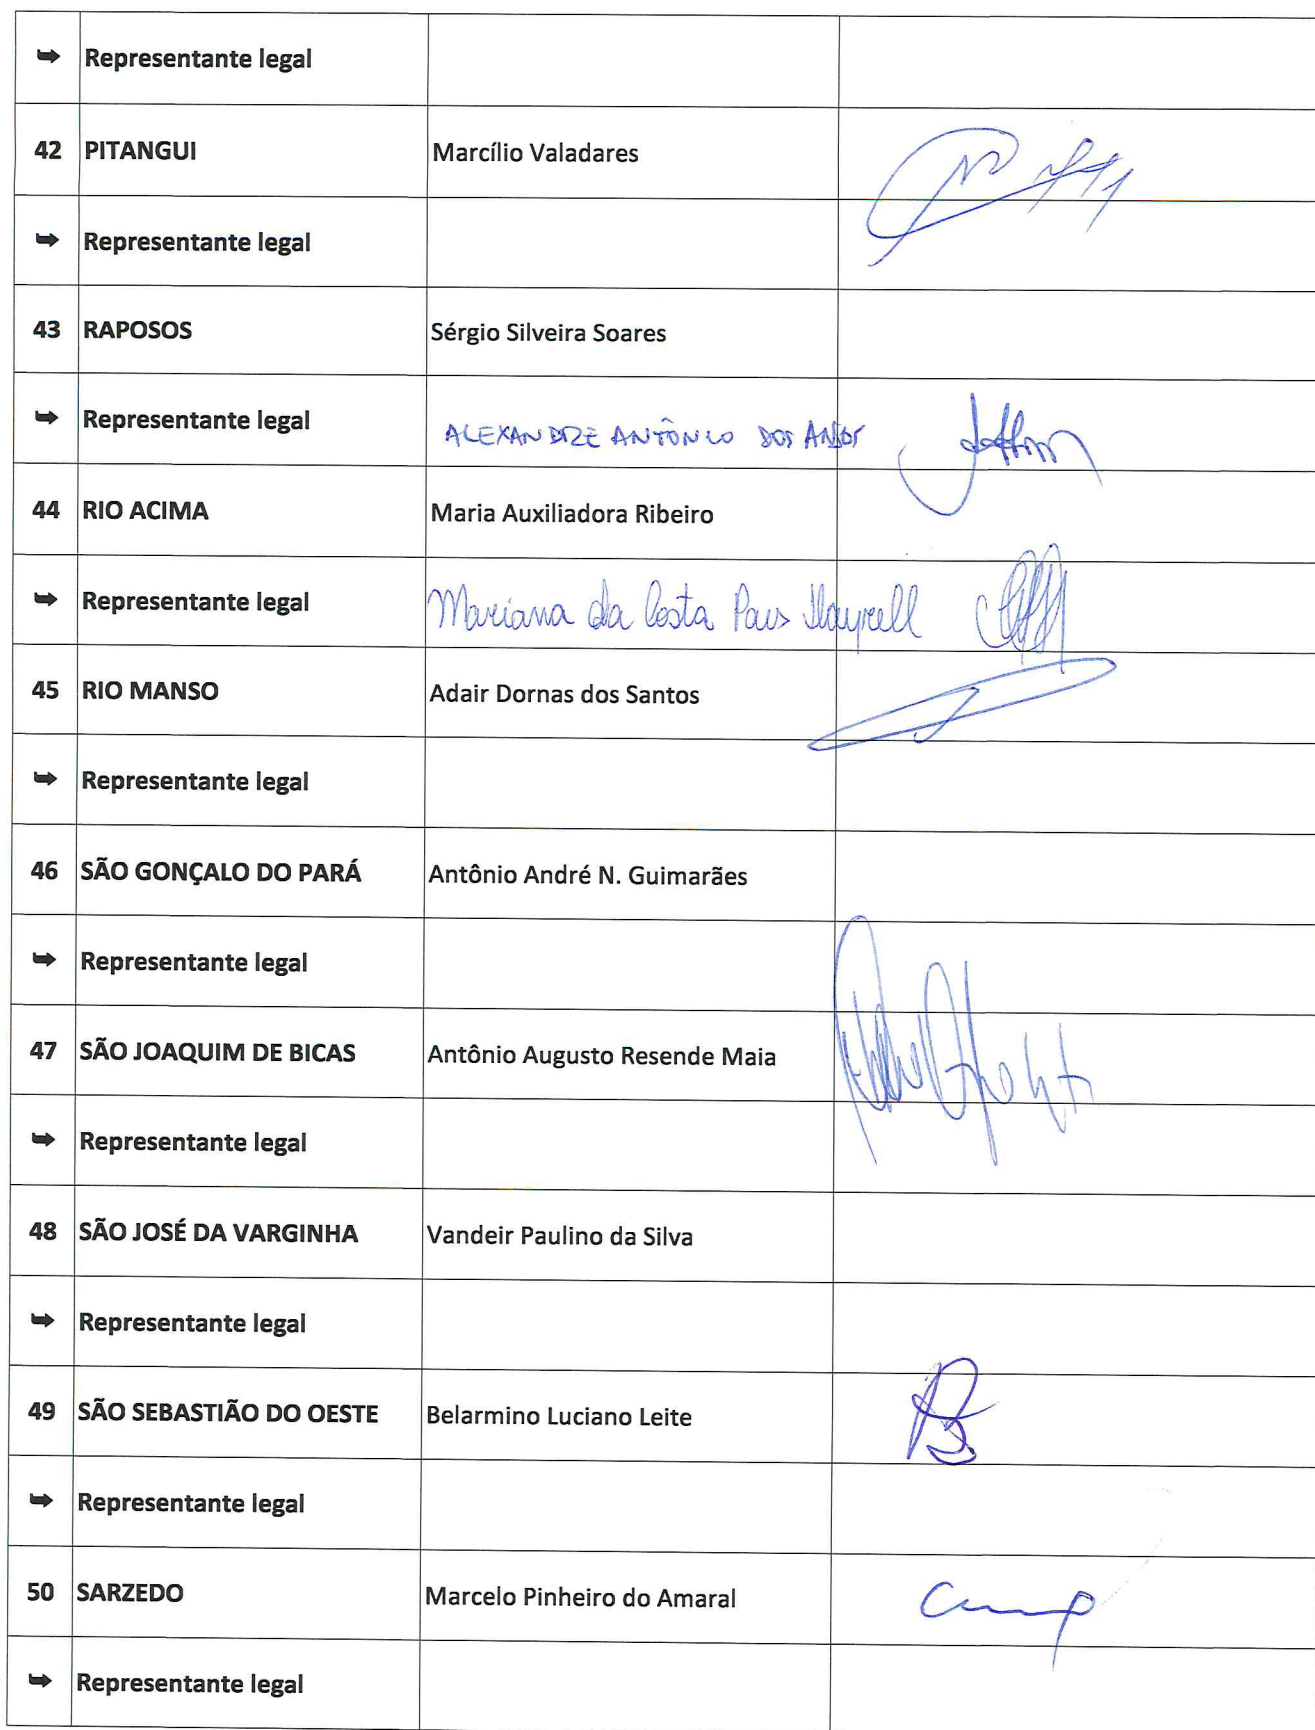 ➥ Representante legal
42 PITANGUI Marcílio Valadares
➥ Representante legal
43 RAPOSOS Sérgio Silveira Soares
➥ Representante legal ALEXANDRE ANTÔNIO DOS ANJOS
44 RIO ACIMA Maria Auxiliadora Ribeiro
➥ Representante legal Mariana da Costa
45 RIO MANSO Adair Dornas dos Santos
➥ Representante legal
46 SÃO GONÇALO DO PARÁ Antônio André N. Guimarães
➥ Representante legal
47 SÃO JOAQUIM DE BICAS Antônio Augusto Resende Maia
➥ Representante legal
48 SÃO JOSÉ DA VARGINHA Vandeir Paulino da Silva
➥ Representante legal
49 SÃO SEBASTIÃO DO OESTE Belarmino Luciano Leite
➥ Representante legal
50 SARZEDO Marcelo Pinheiro do Amaral
➥ Representante legal